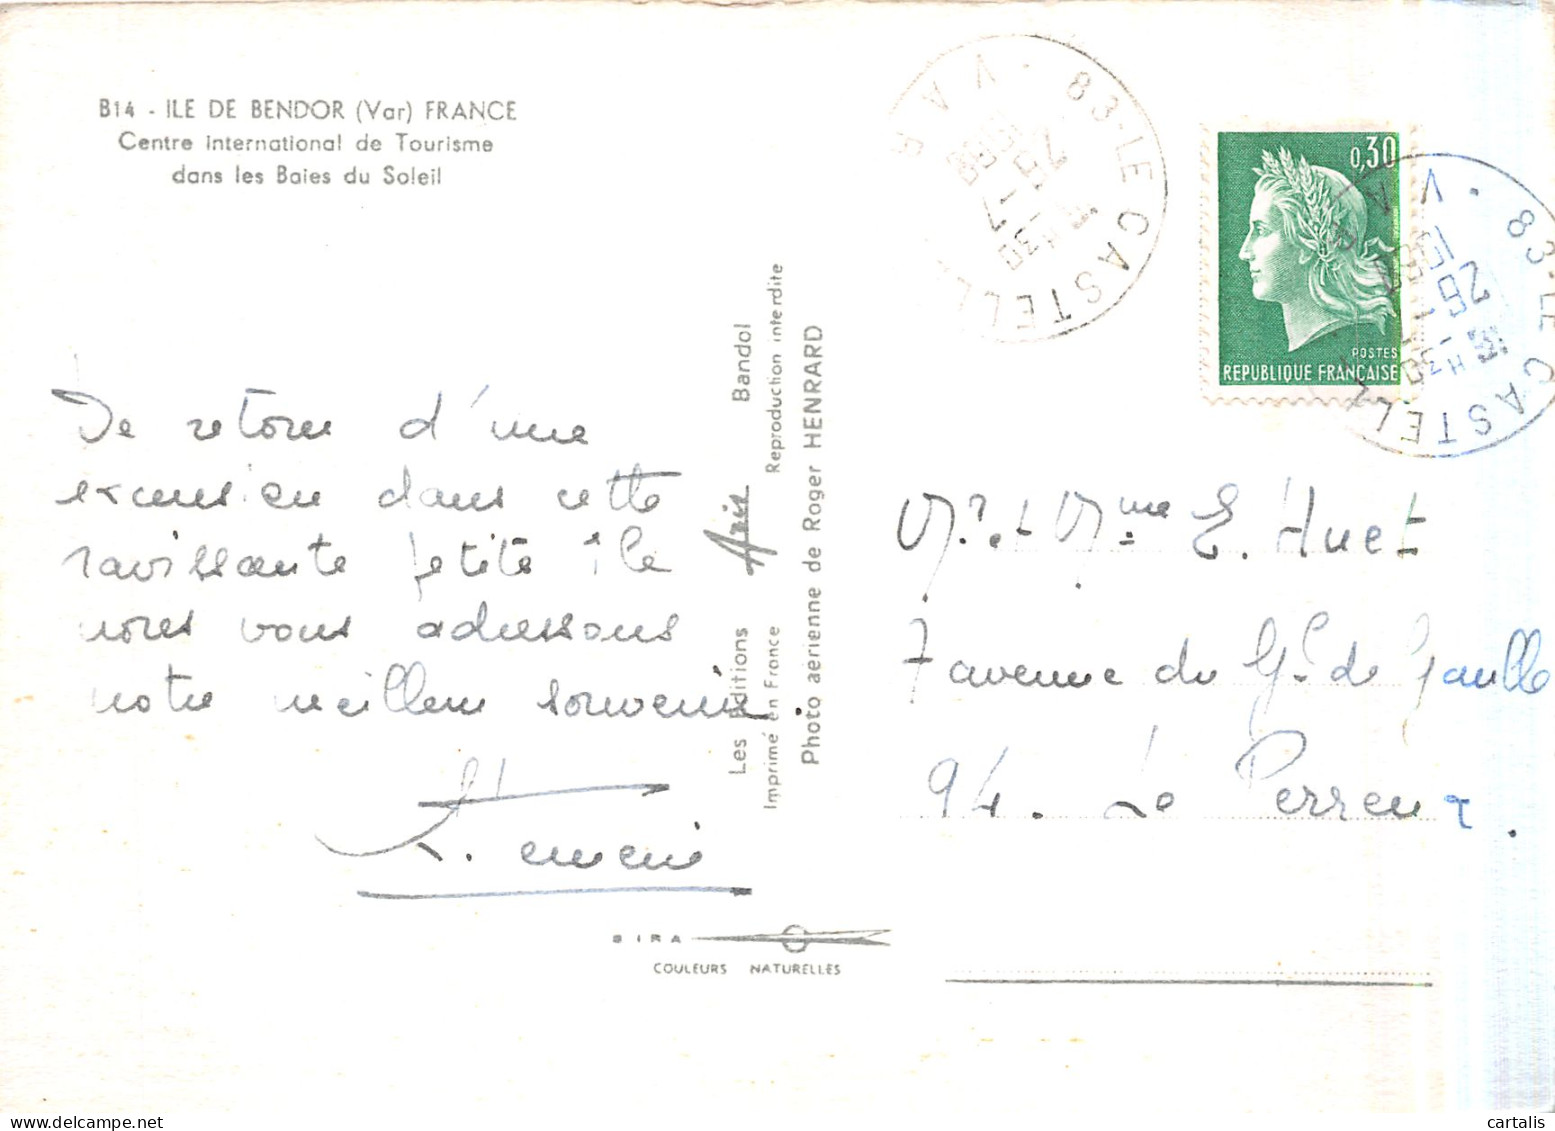 B14 - ILE DE BENDOR (Var) FRANCE
Centre international de Tourisme
dans les Baies du Soleil
De retour d'une
excursion dans cette
ravissante petite île
nous vous adressons
notre meilleur souvenir.
Les Editions Aris Bandol
Imprimé en France Reproduction interdite
Photo aerienne de Roger HENRARD
BIRA
COULEURS NATURELLES
83-LE CASTELL
VAR
0,30
POSTES
REPUBLIQUE FRANÇAISE
83-LE CASTELL
VA
Mr. et Mme E. Huet
7 avenue du Gl. de Gaulle
94. Le Perreux.
cartalis